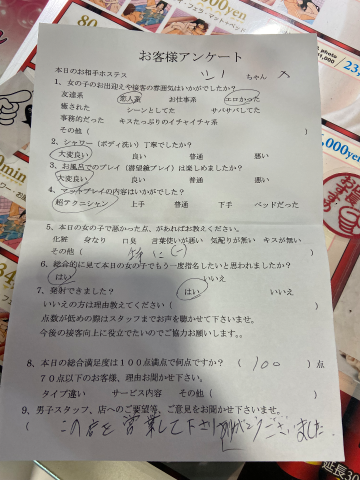 お客様アンケート
本日のお相手ホステス ちゃん
1、女の子のお出迎えや接客の雰囲気はいかがでしたか?
友達系 恋人系 お仕事系 エロかった
癒された シーンとしてた サバサバしてた
事務的だった キスたっぷりのイチャイチャ系
その他( )
2、シャワー(ボディ洗い)丁寧でしたか?
大変良い 良い 普通 悪い
3、お風呂でのプレイ(潜望鏡プレイ)は楽しめましたか?
大変良い 良い 普通 悪い
4、マットプレイの内容はいかがでした?
超テクニシャン 上手 普通 下手 ベッドだった
5、本日の女の子で悪かった点、があればお教えください。
化粧 身なり 口臭 言葉使いが悪い 気配りが無い キスが無い
その他( 特に )
6、総合的に見て本日の女の子でもう一度指名したいと思われましたか?
はい いいえ
7、発射できました? はい いいえ
いいえの方は理由教えてください( )
点数が低めの際はスタッフまでお声を聴かせて下さいませ。
今後の接客向上に役立てたいのでご協力お願いします。。
8、本日の総合満足度は100点満点で何点ですか?( 100 )点
70点以下のお客様、理由お聞かせ下さい。
タイプ違い サービス内容 その他( )
9、男子スタッフ、店へのご要望等、ご意見をお聞かせ下さいませ。
( この店を営業して下さりありがとうございました